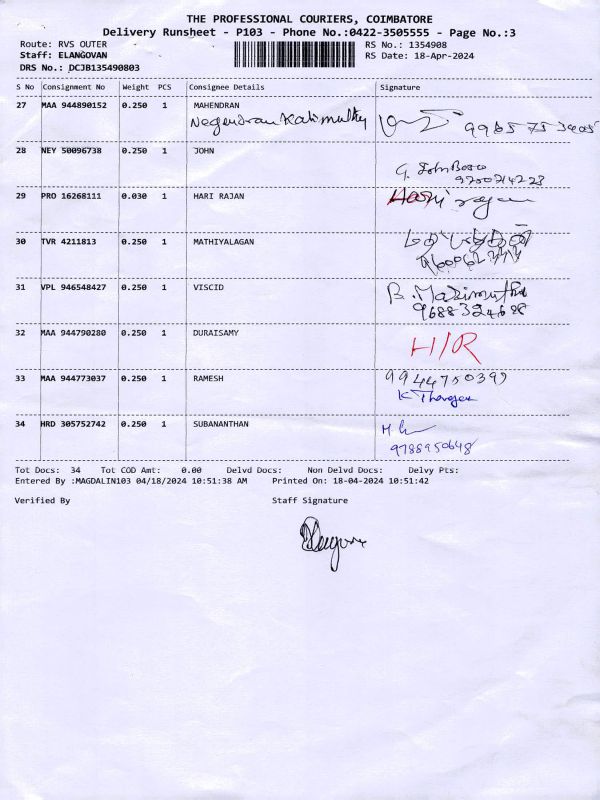 THE PROFESSIONAL COURIERS, COIMBATORE
Delivery Runsheet - P103 - Phone No.:0422-3505555 - Page No.:3
Route: RVS OUTER RS No.: 1354908
Staff: ELANGOVAN RS Date: 18-Apr-2024
DRS No.: DCJB135490803
S No Consignment No Weight PCS Consignee Details Signature
27 MAA 944890152 0.250 1 MAHENDRAN
Negendran Kalimuthu
28 NEY 50096738 0.250 1 JOHN
G. John Bosco
9200214223
29 PRO 16268111 0.030 1 HARI RAJAN
Hari rajan
30 TVR 4211813 0.250 1 MATHIYALAGAN
31 VPL 946548427 0.250 1 VISCID
B. Marimuthu
9688324688
32 MAA 944790280 0.250 1 DURAISAMY
H/R
33 MAA 944773037 0.250 1 RAMESH
9944750399
34 HRD 305752742 0.250 1 SUBANANTHAN
9788950648
Tot Docs: 34 Tot COD Amt: 0.00 Delvd Docs: Non Delvd Docs: Delvy Pts:
Entered By :MAGDALIN103 04/18/2024 10:51:38 AM Printed On: 18-04-2024 10:51:42
Verified By Staff Signature